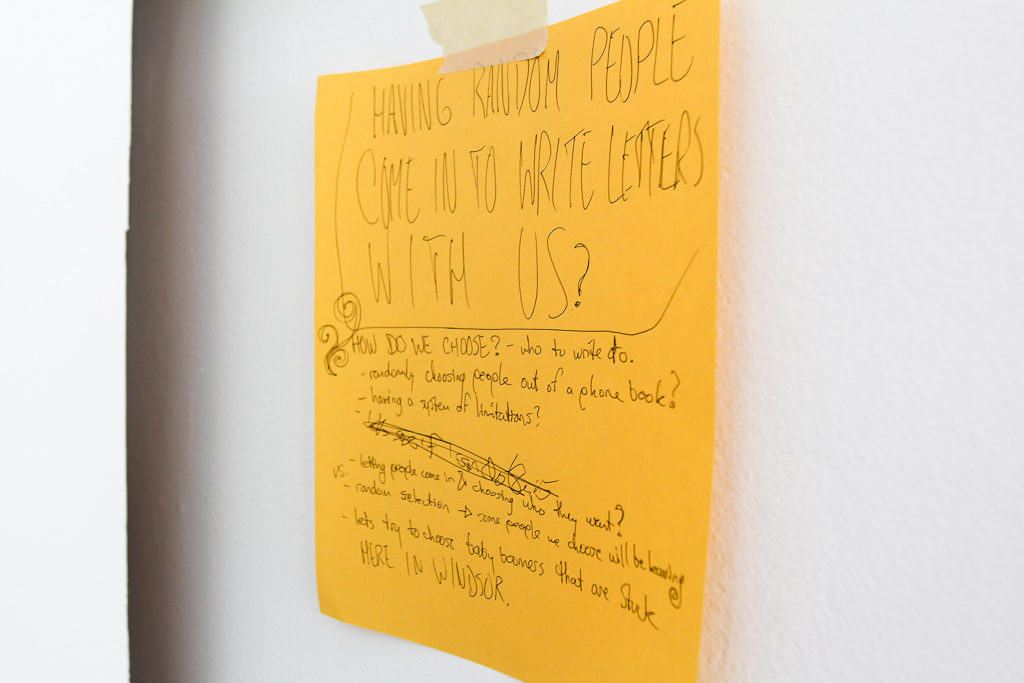 HAVING RANDOM PEOPLE
COME IN TO WRITE LETTERS
WITH US?
HOW DO WE CHOOSE? - who to write to.
- randomly choosing people out of a phone book?
- having a system of limitations?
-
- letting people come in & choosing who they want?
vs. - random selection → some people we choose will be
- lets try to choose baby that are stuck
HERE IN WINDSOR.